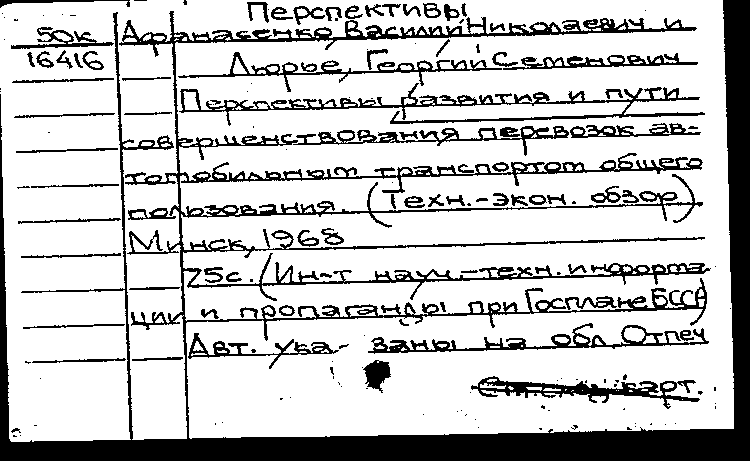 Перспективы
50к Афанасенко, Василий Николаевич и
16416 Люрье, Георгий Семенович
Перспективы развития и пути
совершенствования перевозок ав-
томобильным транспортом общего
пользования. (Техн.-экон. обзор).
Минск, 1968
25с. (Ин-т науч.-техн. информа-
ции и пропаганды при Госплане БССР)
Авт. ука- заны на обл. Отпеч
карт.